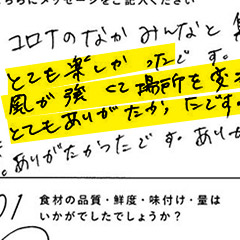 メッセージをご記入ください
コロナのなかみんなと
とても楽しかったです。
風が強くて場所を変
とてもありがたかったです。
ありがたかったです。あり
01 食材の品質・鮮度・味付け・量は
いかがでしたでしょうか？